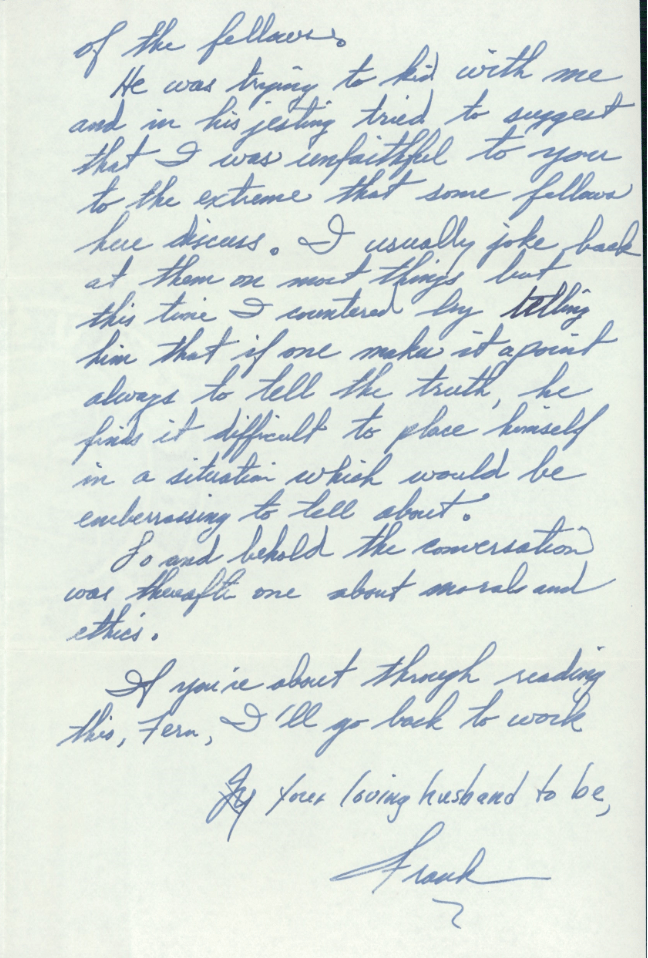 of the fellows.
He was trying to kid with me
and in his jesting tried to suggest
that I was unfaithful to you
to the extreme that some fellows
here discuss. I usually joke back
at them on most things but
this time I countered by telling
him that if one makes it a point
always to tell the truth, he
finds it difficult to place himself
in a situation which would be
emberrassing to tell about.
Lo and behold the conversation
was thereafte one about morals and
ethics.
If you're about through reading
this, Fern, I'll go back to work
your loving husband to be,
Frank